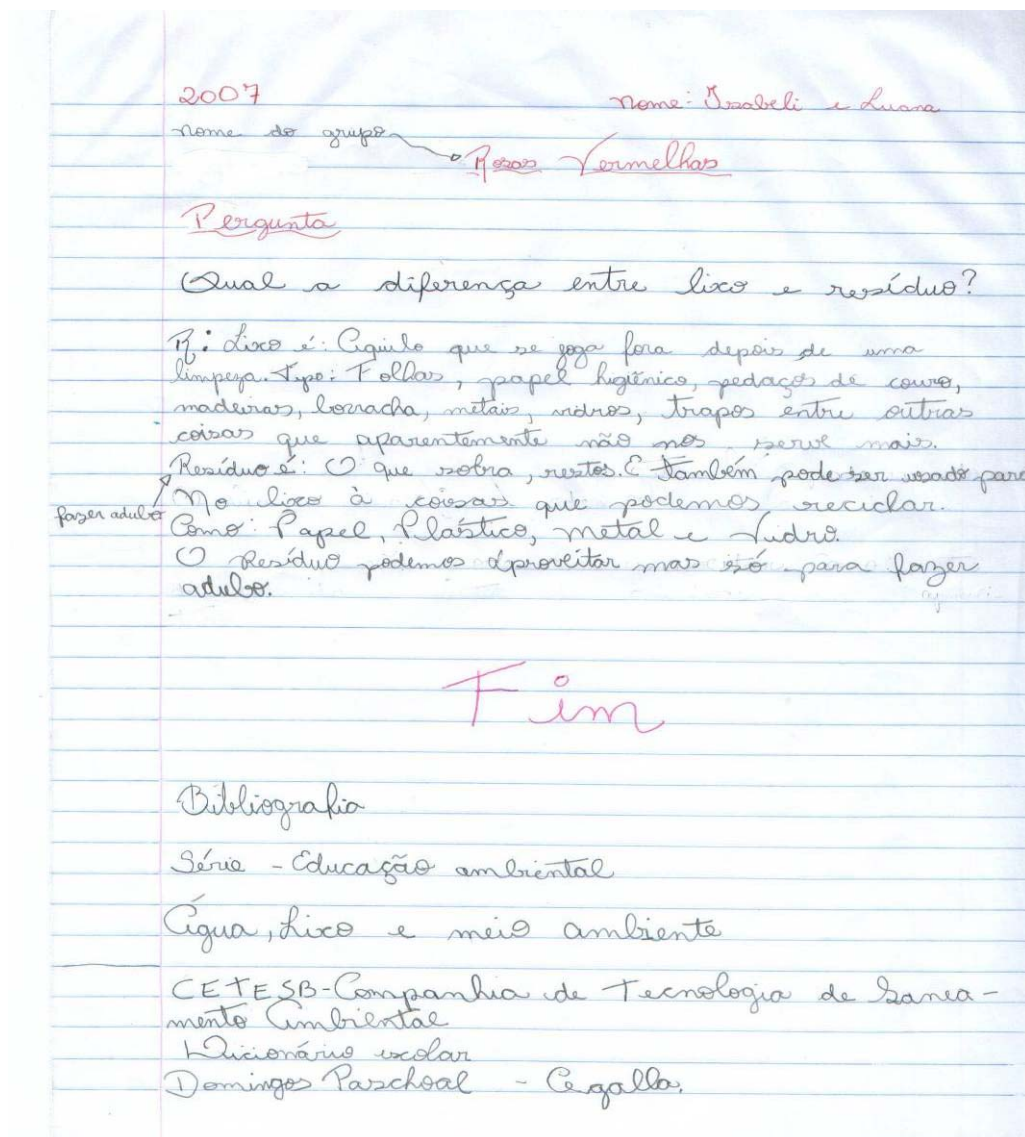 2007 Nome: Isabeli e Luana
Nome do grupo
Rosas Vermelhas
Pergunta
Qual a diferença entre lixo e resíduo?
R: Lixo é: Aquilo que se joga fora depois de uma
limpeza. Tipo: Folhas, papel higiênico, pedaços de couro,
madeiras, borracha, metais, vidros, trapos entre outras
coisas que aparentemente não nos serve mais.
Resíduo é: O que sobra, restos. E também pode ser usado para
fazer adubo
No lixo à coisas que podemos reciclar.
Como: Papel, Plástico, metal e Vidro.
O Resíduo podemos aproveitar mas só para fazer
adubo.
Fim
Bibliografia
Série - Educação ambiental
Água, Lixo e meio ambiente
CETESB-Companhia de Tecnologia de Sanea-
mento Ambiental
Dicionário escolar
Domingos Paschoal - Cegalla.